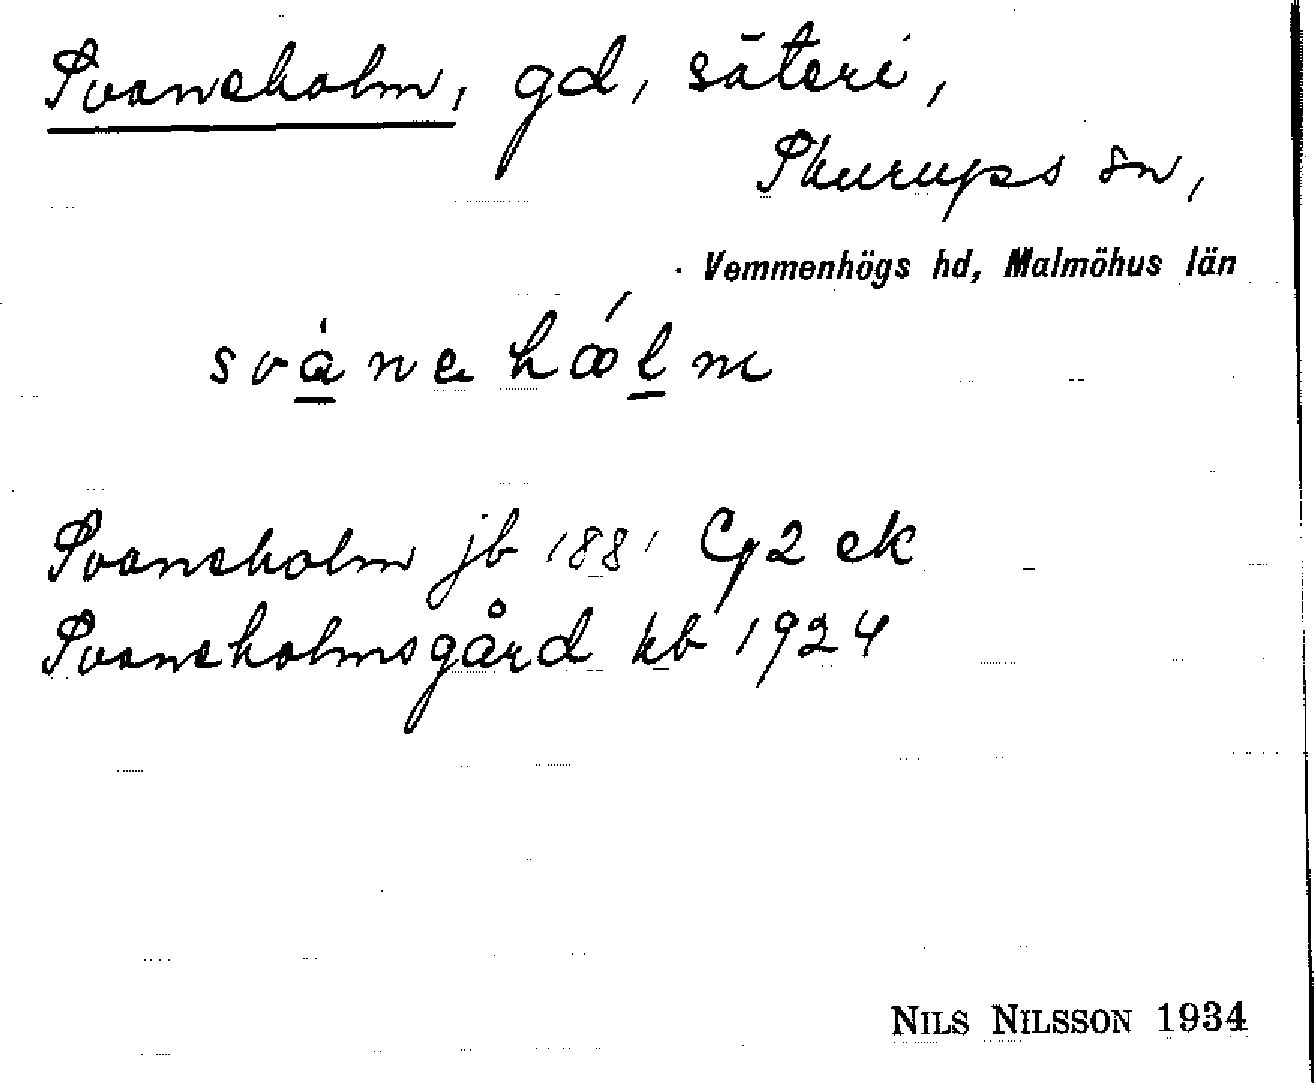 Svaneholm, gd, säteri,
Skurups sn,
Vemmenhögs hd, Malmöhus län
Svaneholm jb 1881 Cg2 ek
Svaneholmsgård kb 1924
NILS NILSSON 1934